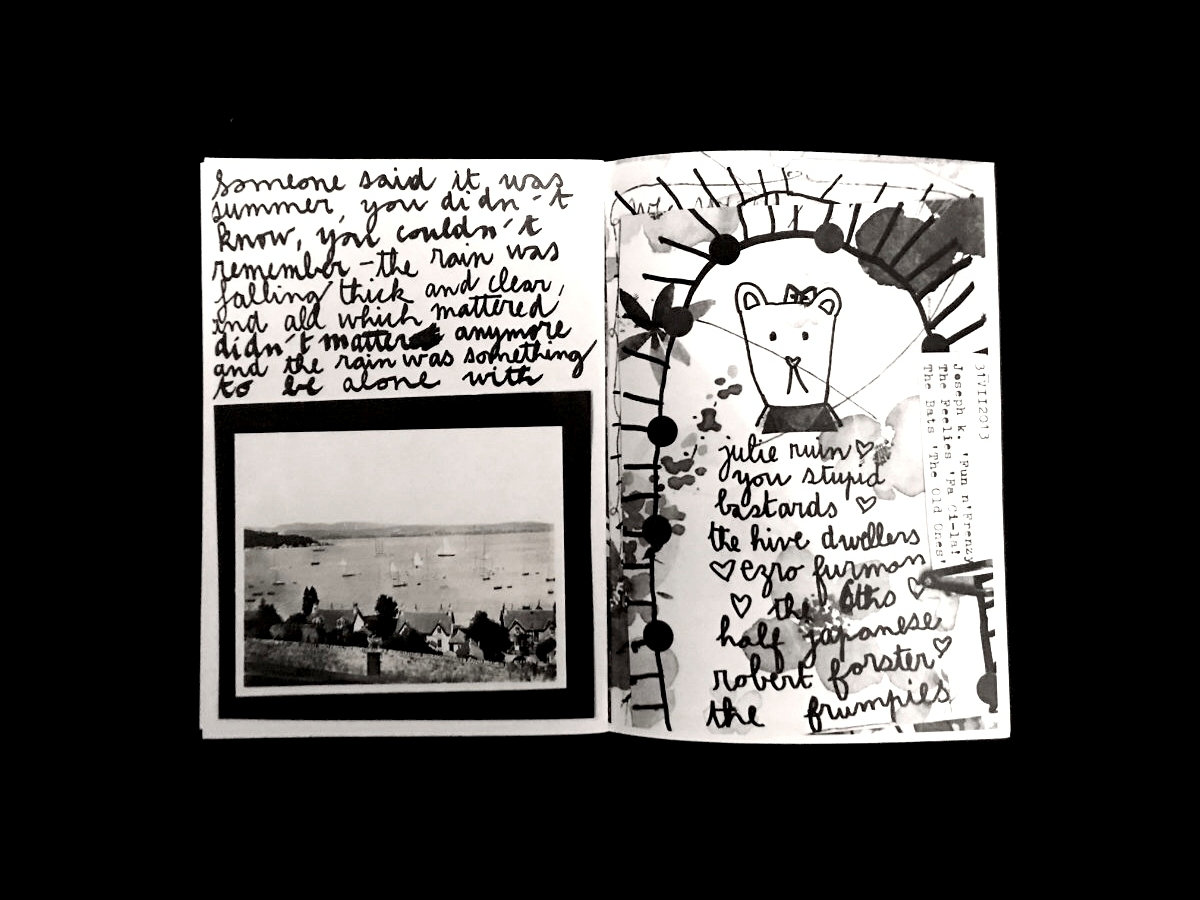 someone said it was
summer, you didn't
know, you couldn't
remember - the rain was
falling thick and clear,
and all which mattered
didn't matter anymore
and the rain was something
to be alone with
julie ruin ♡
you stupid
bastards ♡
the hive dwellers
♡ ezra furman
♡ the ♡
half japanese
robert forster ♡
the frumpies
31VII2013
Joseph k. 'Fun n'Frenzy
The Feelies 'Fa Ci-la!
The Bats 'The Old Ones'